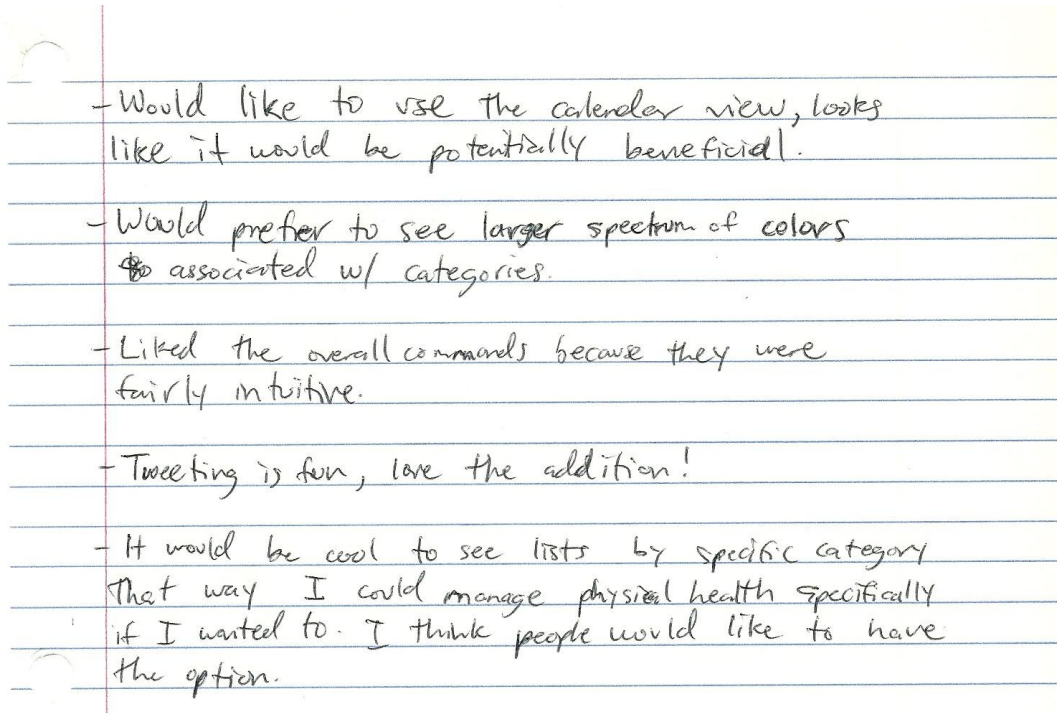 - Would like to use the calendar view, looks
like it would be potentially beneficial.
- Would prefer to see larger spectrum of colors
associated w/ categories.
- Liked the overall commands because they were
fairly intuitive.
- Tweeting is fun, love the addition!
- It would be cool to see lists by specific category
that way I could manage physical health specifically
if I wanted to. I think people would like to have
the option.